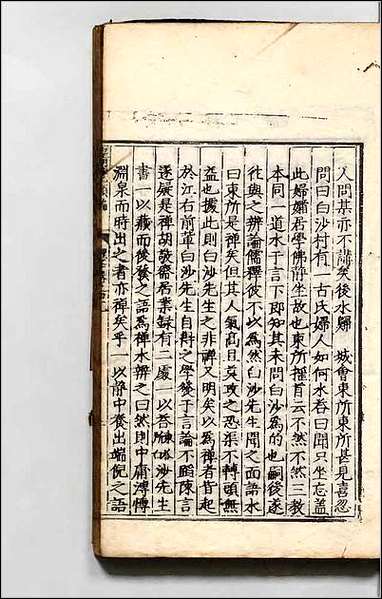 人問某亦不講矣後水歸　城會東所東所甚見喜忽
問曰白沙村有一古氏婦人如何水答曰聞只坐忘蓋
此婦孀居學佛靜坐故也東所搖首云不然不然三教
本同一道水于言下即知其未問白沙爲的也嗣後遂
往與之辨論儒釋彼不以爲然白沙先生聞之面語水
曰東所是禪矣但其人氣高且莫攻之恐渠不轉頭無
益也據此則白沙先生之非禪又明矣以爲禪者昔起
於江右前輩白沙先生自得之學發于言論不蹈陳言
遂疑是禪胡敬齋居業錄有二處一以答陳白沙先生
書一以藏而後發之語爲禪水辨之曰然則中庸溥博
淵泉而時出之者亦禪矣乎一以靜中養出端倪之語